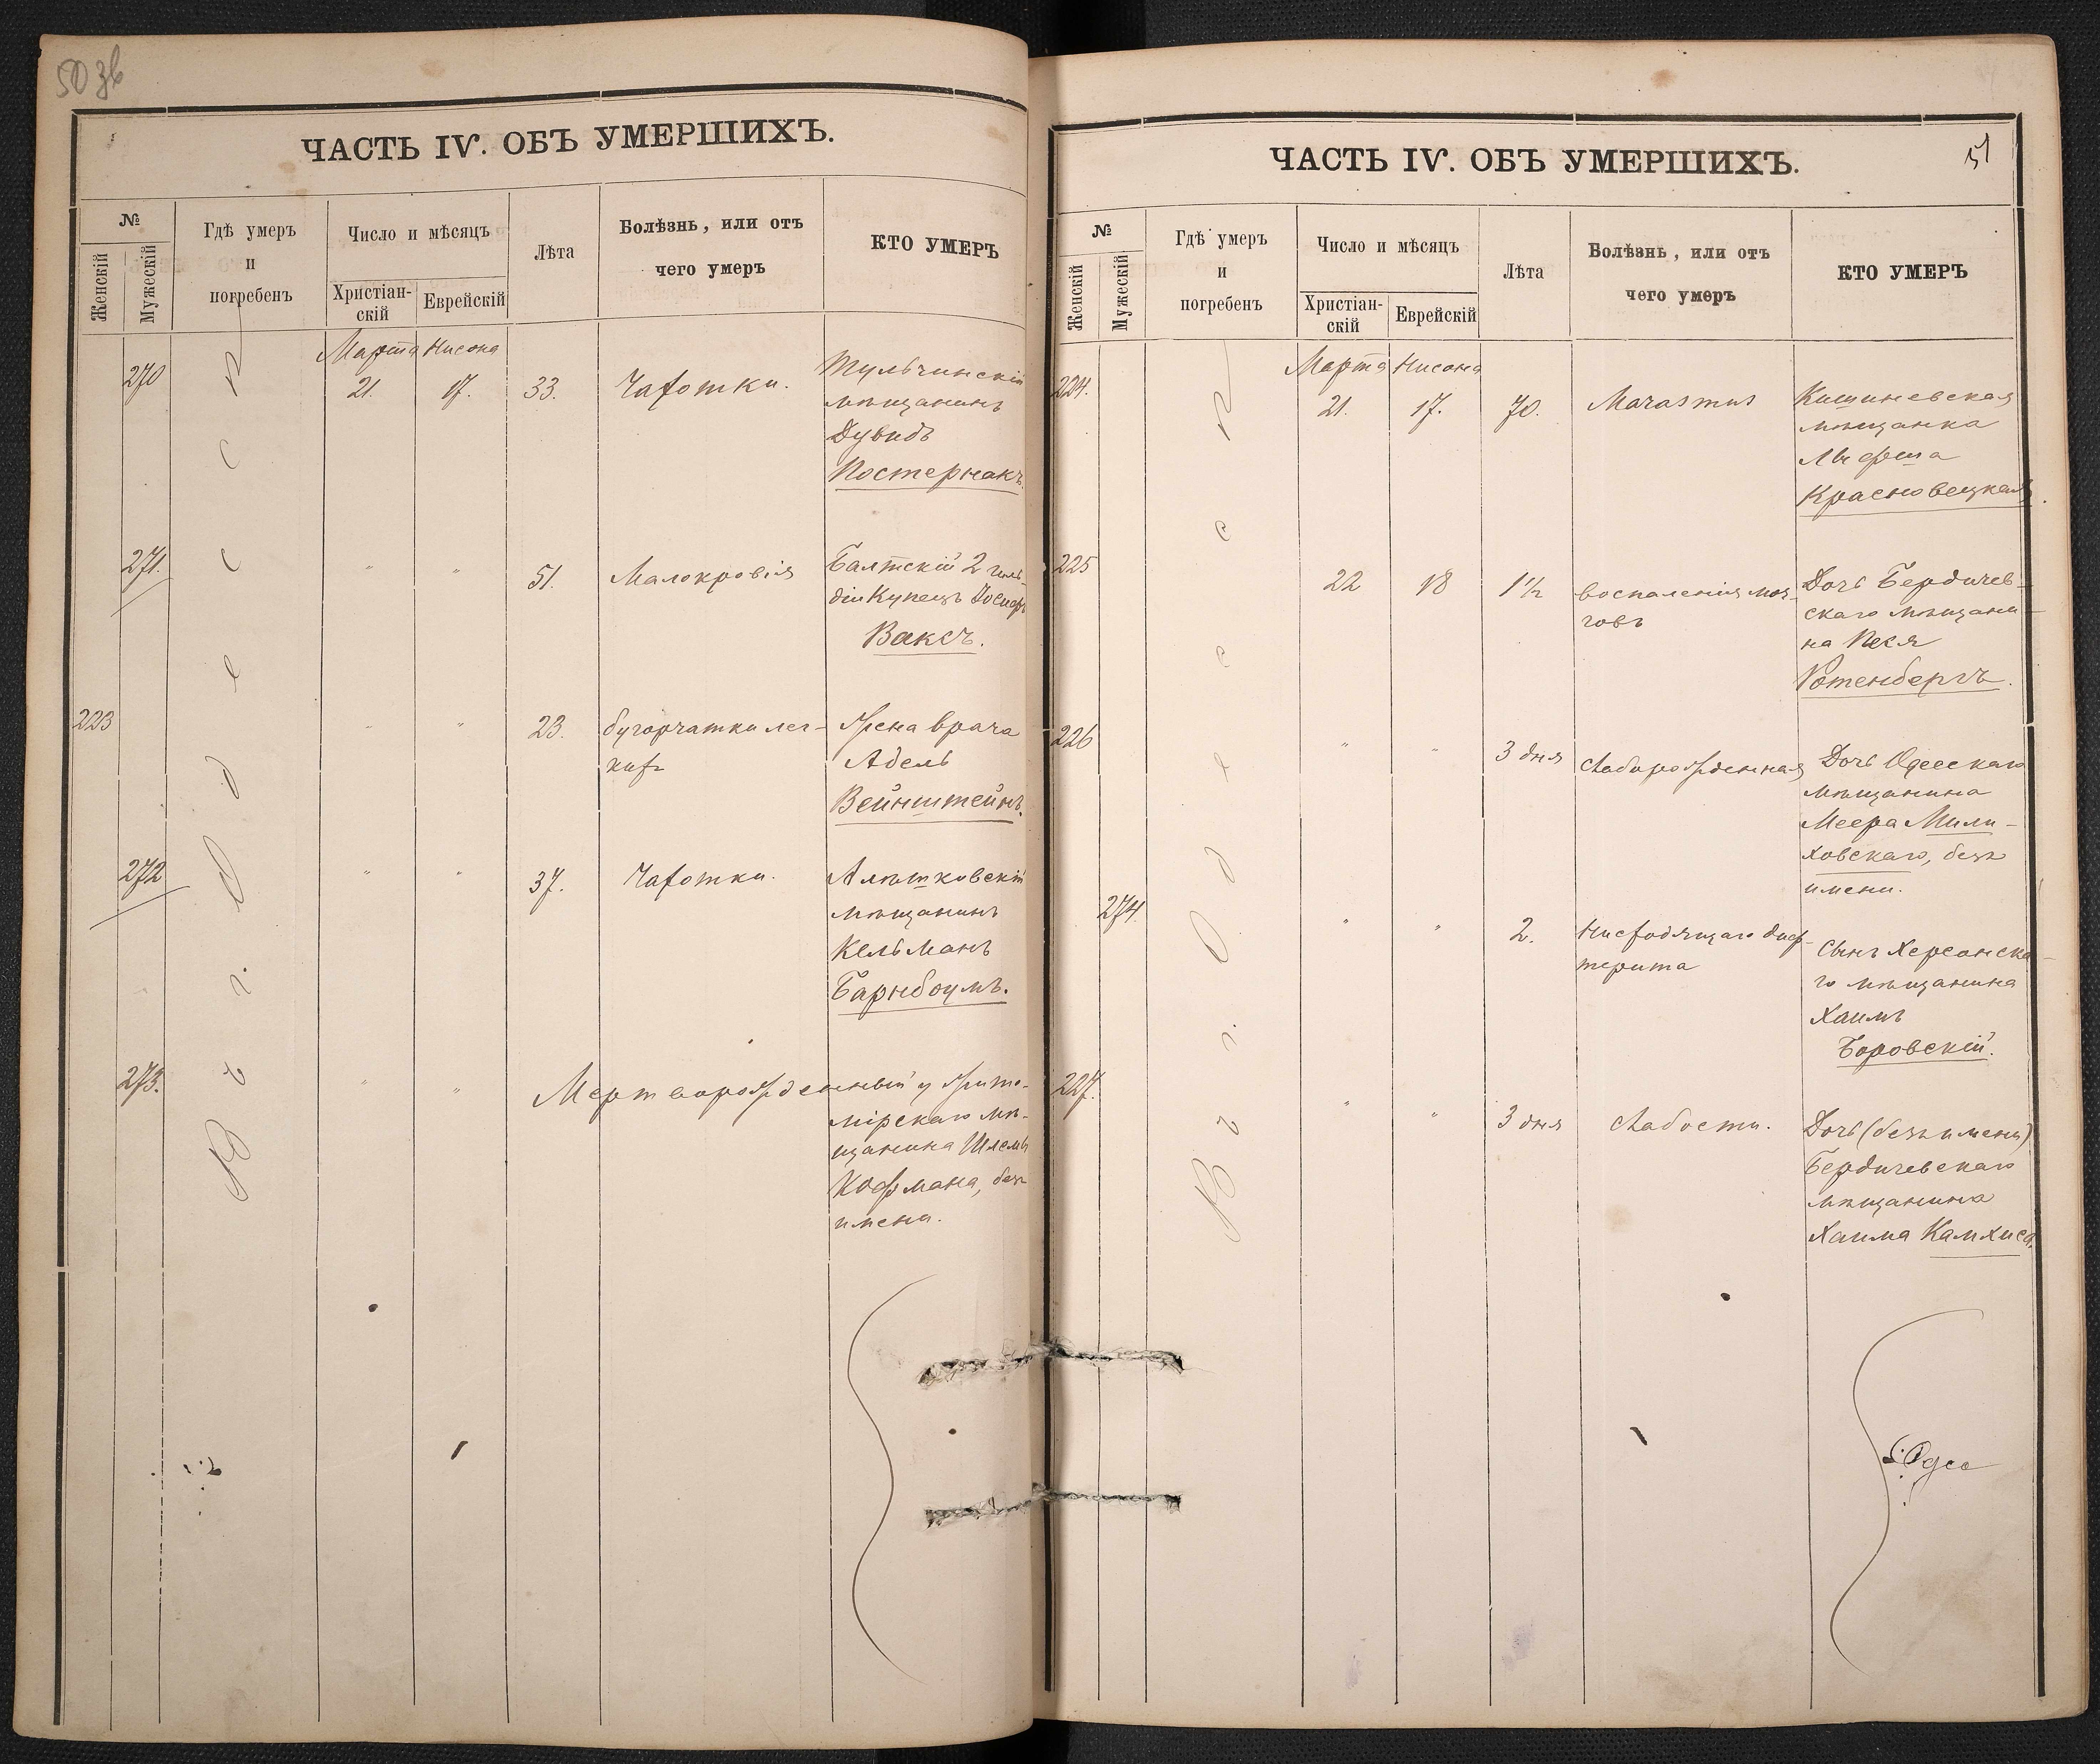 50 зв
ЧАСТЬ IV. ОБЪ УМЕРШИХЪ.
№
Женскій
Мужескій
Гдѣ умеръ
и
погребенъ
Число и мѣсяцъ
Христіан-
скій
Еврейскій
Лѣта
Болѣзнь, или отъ
чего умеръ
КТО УМЕРЪ
Въ г. Одессѣ
Марта Нисона
270 21. 17. 33. Чахотки. Тульчинскій
мѣщанинъ
Дувидъ
Постернакъ.
271. " " 51. Малокровія Балтскій 2 гиль-
діи Купецъ Іосифъ
Ваксъ.
223 " " 23. бугорчатки лег- Жена врача
кихъ Адель
Вейнштейнъ.
272 " " 37. Чахотки.
мѣщанинъ
Кельманъ
Барнбоумъ.
273. " " Мертворожденный у Жито-
мірскаго мѣ-
щанина Шлемы
Кофмана, безъ
имени.
ЧАСТЬ IV. ОБЪ УМЕРШИХЪ.
51
№
Женскій
Мужескій
Гдѣ умеръ
и
погребенъ
Число и мѣсяцъ
Христіан-
скій
Еврейскій
Лѣта
Болѣзнь, или отъ
чего умеръ
КТО УМЕРЪ
Въ г. Одессѣ
Марта Нисона
224. 21. 17. 70. Marasmus Кишиневская
мѣщанка
Красновецкая.
225 22 18 1½ воспаленія моз- Дочь Бердичев-
говъ скаго мѣщани-
на Песя
Ротенбергъ.
226 " " 3 дня Слаборожденная Дочь Одесскаго
мѣщанина
Меера Мили-
ховскаго, безъ
имени.
274. " " 2. Нисходящаго диф- Сынъ Херсонска-
терита го мѣщанина
Хаимъ
Боровскій.
227. " " 3 дня Слабости. Дочь (безъ имени)
Бердичевскаго
мѣщанина
Хаима Камхиса.